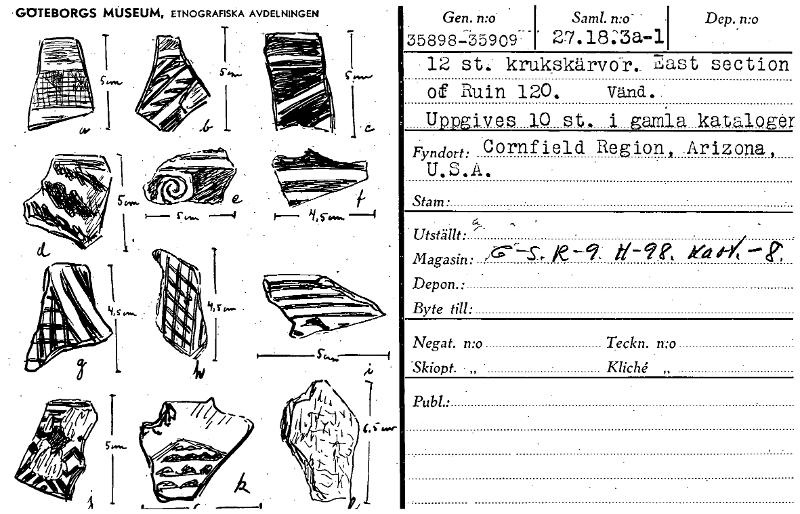 GÖTEBORGS MUSEUM, ETNOGRAFISKA AVDELNINGEN
5cm
a
5cm
b
5cm
c
5cm
d
5cm
e
4,5cm
f
4,5cm
g
4,5cm
h
5cm
i
5cm
j
k
6,5cm
l
Gen. n:o Saml. n:o Dep. n:o
35898-35909 27.18.3a-l
12 st. krukskärvor. East section
of Ruin 120. Vänd.
Uppgives 10 st. i gamla kataloger
Fyndort: Cornfield Region, Arizona,
U.S.A.
Stam:
Utställt:
Magasin: R-9. H-98. -8.
Depon.:
Byte till:
Negat. n:o Teckn. n:o
Skiopt. „ Kliché „
Publ.: